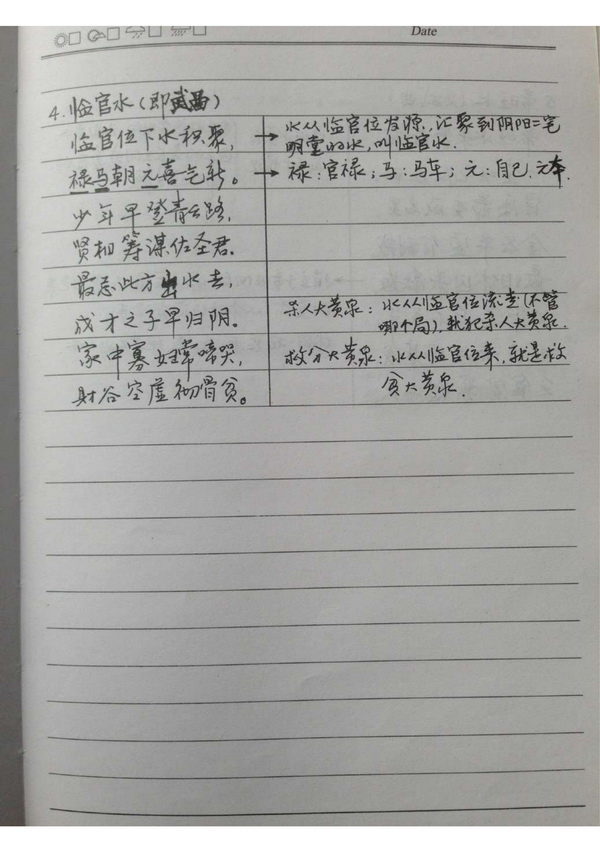 Date
4. 临官水（即武曲）
临官位下水积聚，→ 水从临官位发源，汇聚到阴阳二宅
明堂的水，叫临官水.
禄马朝元喜气新。→ 禄：官禄；马：马车；元：自己.元本.
少年早登青云路，
贤相筹谋佐圣君.
最忌此方出水去，
成才之子早归阴。
杀人大黄泉：水从临官位流走（不管
哪个局），就犯杀人大黄泉.
家中寡妇常啼哭，
救贫大黄泉：水从临官位来，就是救
贫大黄泉.
财谷空虚彻骨贫。